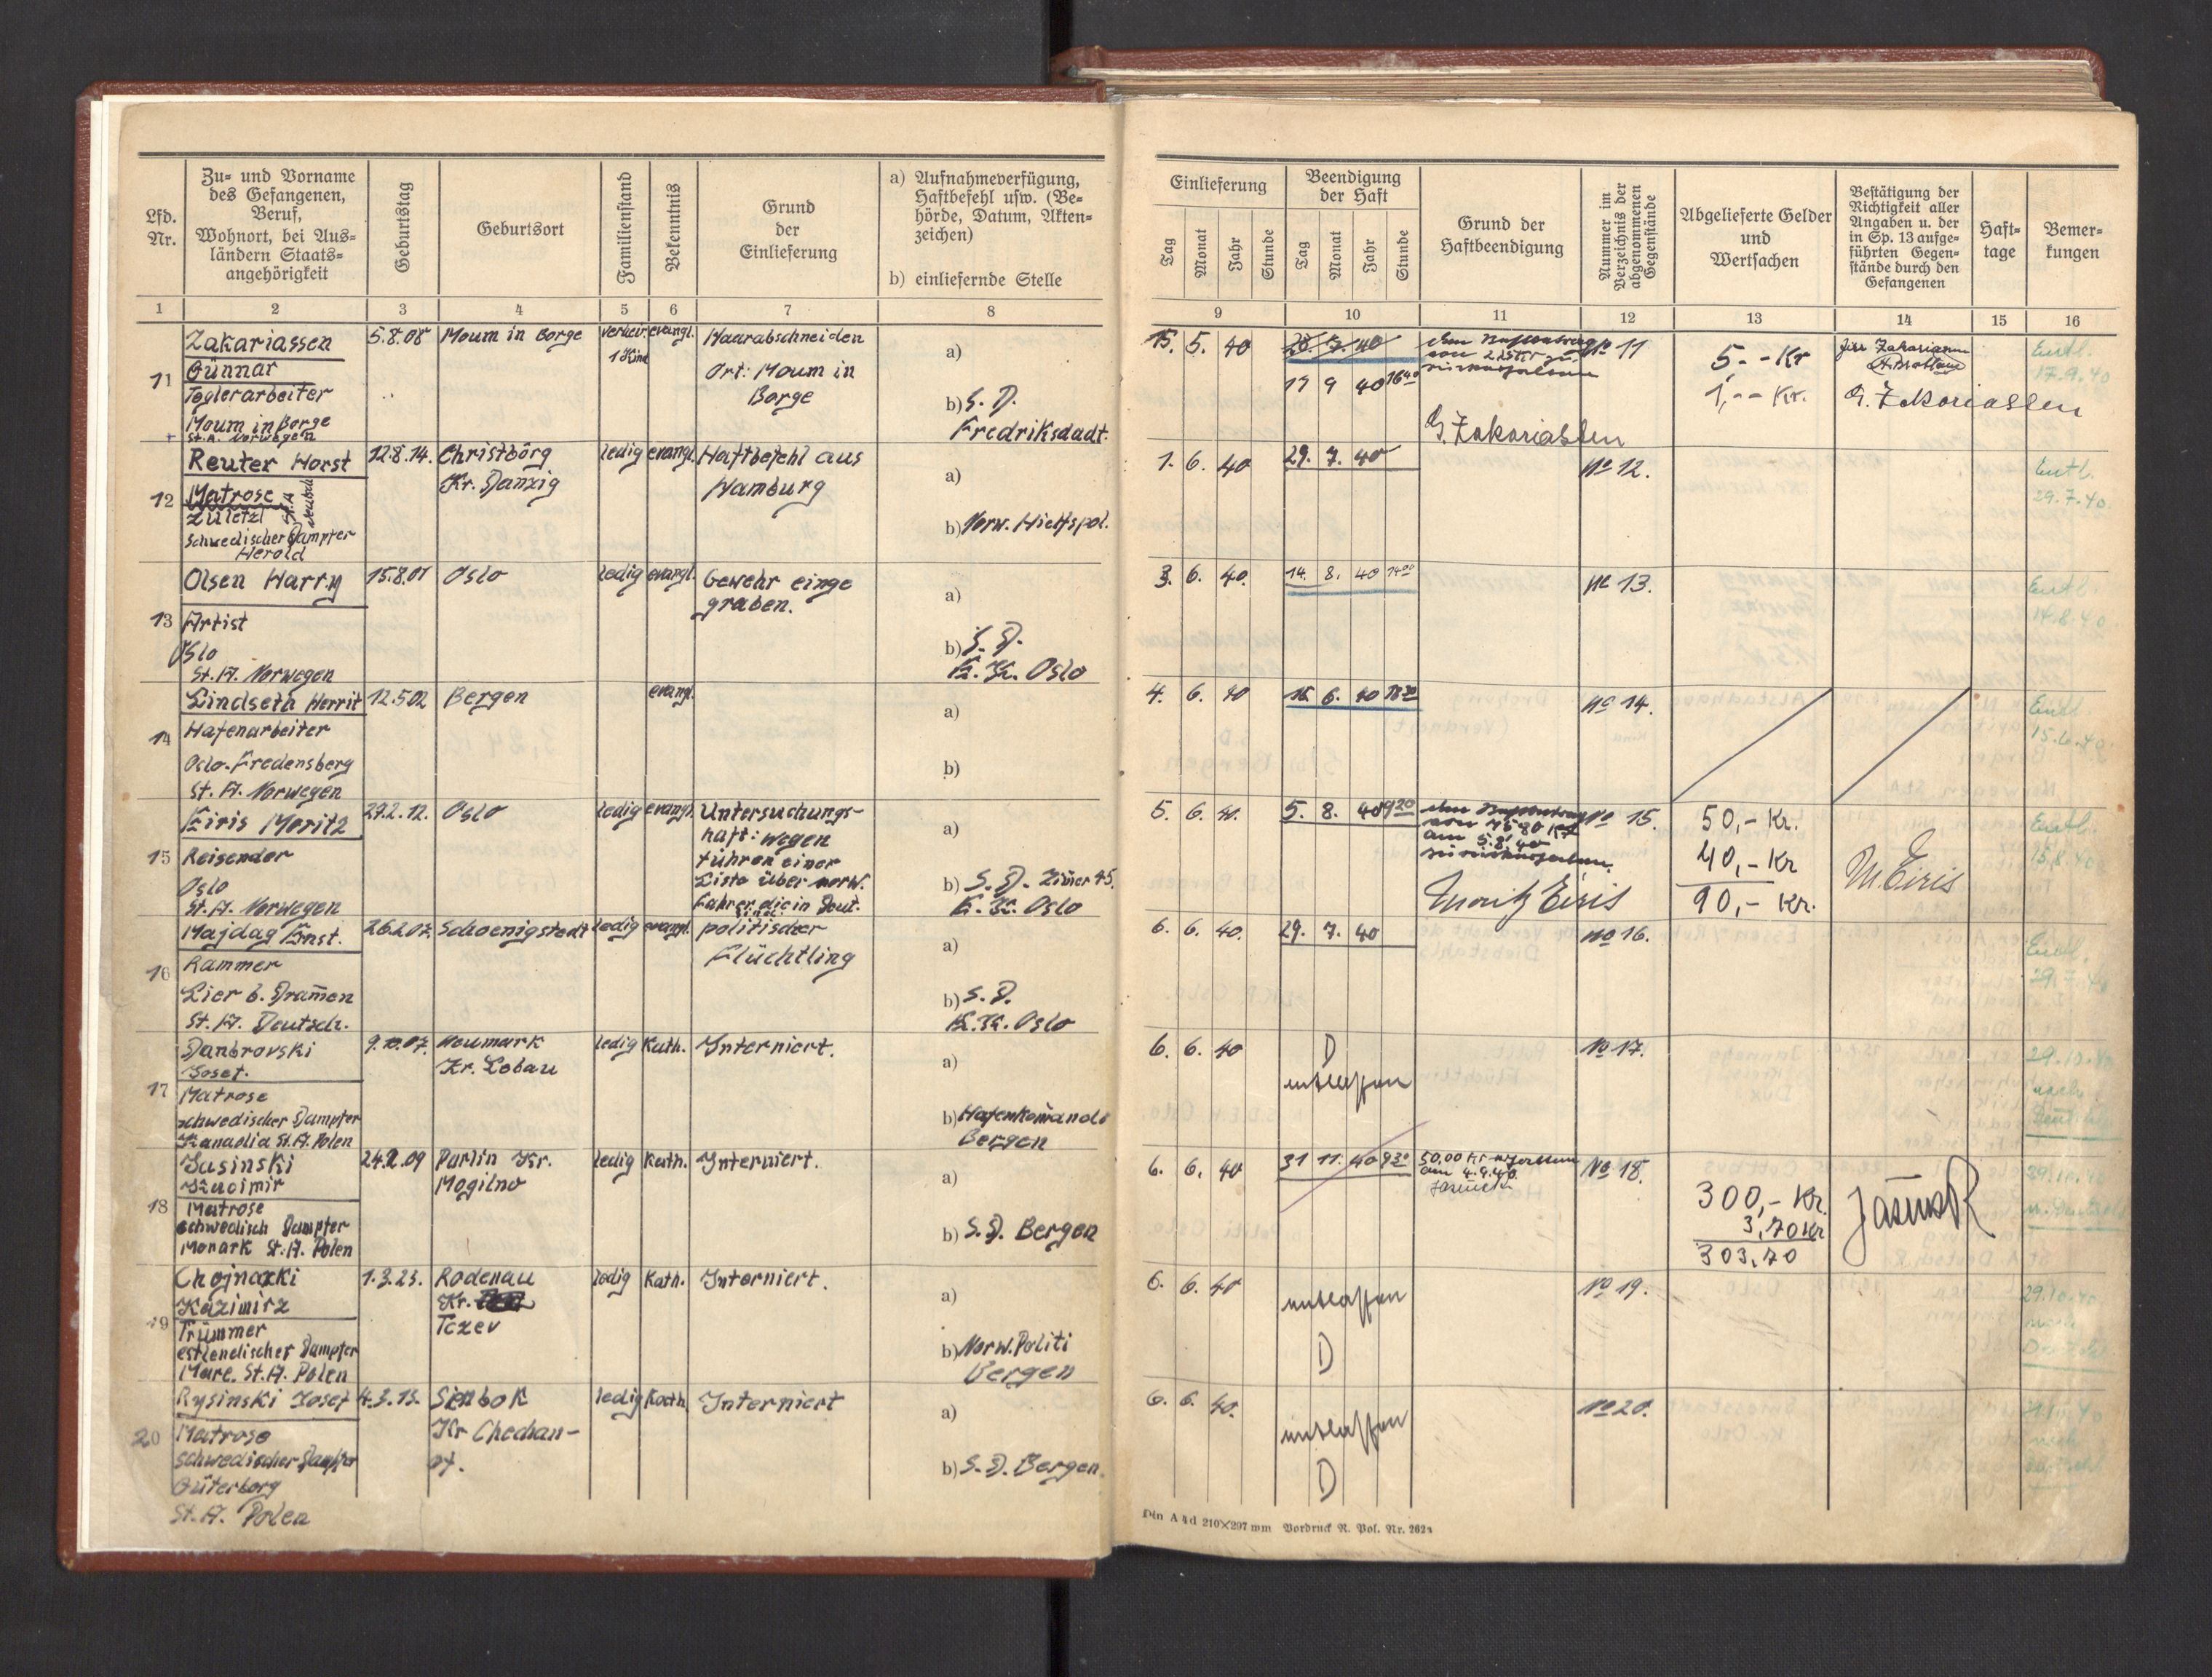 Lfd. Nr.
Zu- und Vorname des Gefangenen, Beruf, Wohnort, bei Ausländern Staatsangehörigkeit
Geburtstag
Geburtsort
Familienstand
Bekenntnis
Grund der Einlieferung
a) Aufnahmeverfügung, Haftbefehl usw. (Behörde, Datum, Aktenzeichen)
b) einliefernde Stelle
Einlieferung
Tag Monat Jahr Stunde
Beendigung der Haft
Tag Monat Jahr Stunde
Grund der Haftbeendigung
Nummer im Verzeichnis der abgenommenen Gegenstände
Abgelieferte Gelder und Wertsachen
Bestätigung der Richtigkeit aller Angaben u. der in Sp. 13 aufgeführten Gegenstände durch den Gefangenen
Hafttage
Bemerkungen
1 2 3 4 5 6 7 8 9 10 11 12 13 14 15 16
11
Zakariassen
Günnar
Teglerarbeiter
Moum in Borge
St.A. Norwegen
5.8.08
Moum in Borge
verheir.
1 Kind
evangl.
Haarabschneiden
Ort: Moum in
Borge
a)
b) S. D.
Fredriksdadt.
15. 5. 40
20. 7. 40
17 9 40 16 40
G. Zakariassen
No 11
5.- - Kr
1,- - Kr.
G. Zakariassen
Entl.
17.9.40
12
Reuter Horst
Matrose
Zuletzt
schwedischer Dampfer
Herold
12.8.14.
Christbörg
Kr. Danzig
ledig
evangl.
Haftbefehl aus
Hamburg
a)
b) Norw. Hielfspol.
1. 6. 40
29. 7. 40
No 12.
Entl.
29.7.40
13
Olsen Harry
Artist
Oslo
St. A. Norwegen
15.8.01
Oslo
ledig
evangl.
Gewehr einge
graben.
a)
b) S. D.
K. K. Oslo
3. 6. 40.
14. 8. 40 14 00
No 13.
Entl.
14.8.40
14
Lindseth Herrit
Hafenarbeiter
Oslo-Fredensberg
St. A. Norwegen
12.5.02
Bergen
evangl.
a)
b)
4. 6. 40
15. 6. 40
No 14.
Entl.
15.6.40.
15
Eiris Moritz
Reisender
Oslo
St. A. Norwegen
29.2.12.
Oslo
ledig
evangl.
Untersuchungs-
haft: wegen
führen einer
Liste über norw.
Fahrer die in Deut.
sind.
a)
b) S. D. Zimer 45.
K. K. Oslo
5. 6. 40.
5. 8. 40 9 20
am 5.8.40
Moritz Eiris
No 15.
50,- Kr.
40,- Kr
90,- Kr.
M. Eiris
Entl.
16
Majdag Ernst.
Rammer
Lier b. Dram̄en
St. A. Deutsch.
26.2.07.
Schoenigstedt
ledig
evangl.
politischer
Flüchtling
a)
b) S. D.
K. K. Oslo
6. 6. 40.
29. 7. 40
No 16.
Entl.
29.7.40
17
Danbrovski
Josef.
Matrose
schwedischer Dampfer
Kanadia St. A. Polen
9.10.07.
Neumark
Kr. Lobau
ledig
Kath.
Interniert.
a)
b) Hafenkom̄ando
Bergen
6. 6. 40
D
entlassen
No 17.
18
Jasinski
Kazimir
Matrose
schwedisch Dampfer
Monark St. A. Polen
24.2.09
Parlin Kr.
Mogilno
ledig
Kath.
Interniert.
a)
b) S. D. Bergen
6. 6. 40
31 11. 40 9 30
50,00 Kr
am 4.9.40
No 18.
300,- Kr.
3,70 Kr
303,70
19
Chojnazki
Kazimirz
Trümmer
estlendischer Dampfer
Mare. St. A. Polen
1.3.23.
Rodenau
Kr.
Tczev
ledig
Kath.
Interniert.
a)
b) Norw. Politi
Bergen
6. 6. 40
entlassen
D
No 19.
29.10.40
20
Rysinski Josef
Matrose
schwedischer Dampfer
Güterborg
St. A. Polen
4.3.13.
Sienbok
Kr Chechan-
of.
ledig
Kath.
Interniert
a)
b) S. D. Bergen.
6. 6. 40.
entlassen
D
No 20.
Din A 4d 210×297 mm Vordruck R. Pol. Nr. 262a